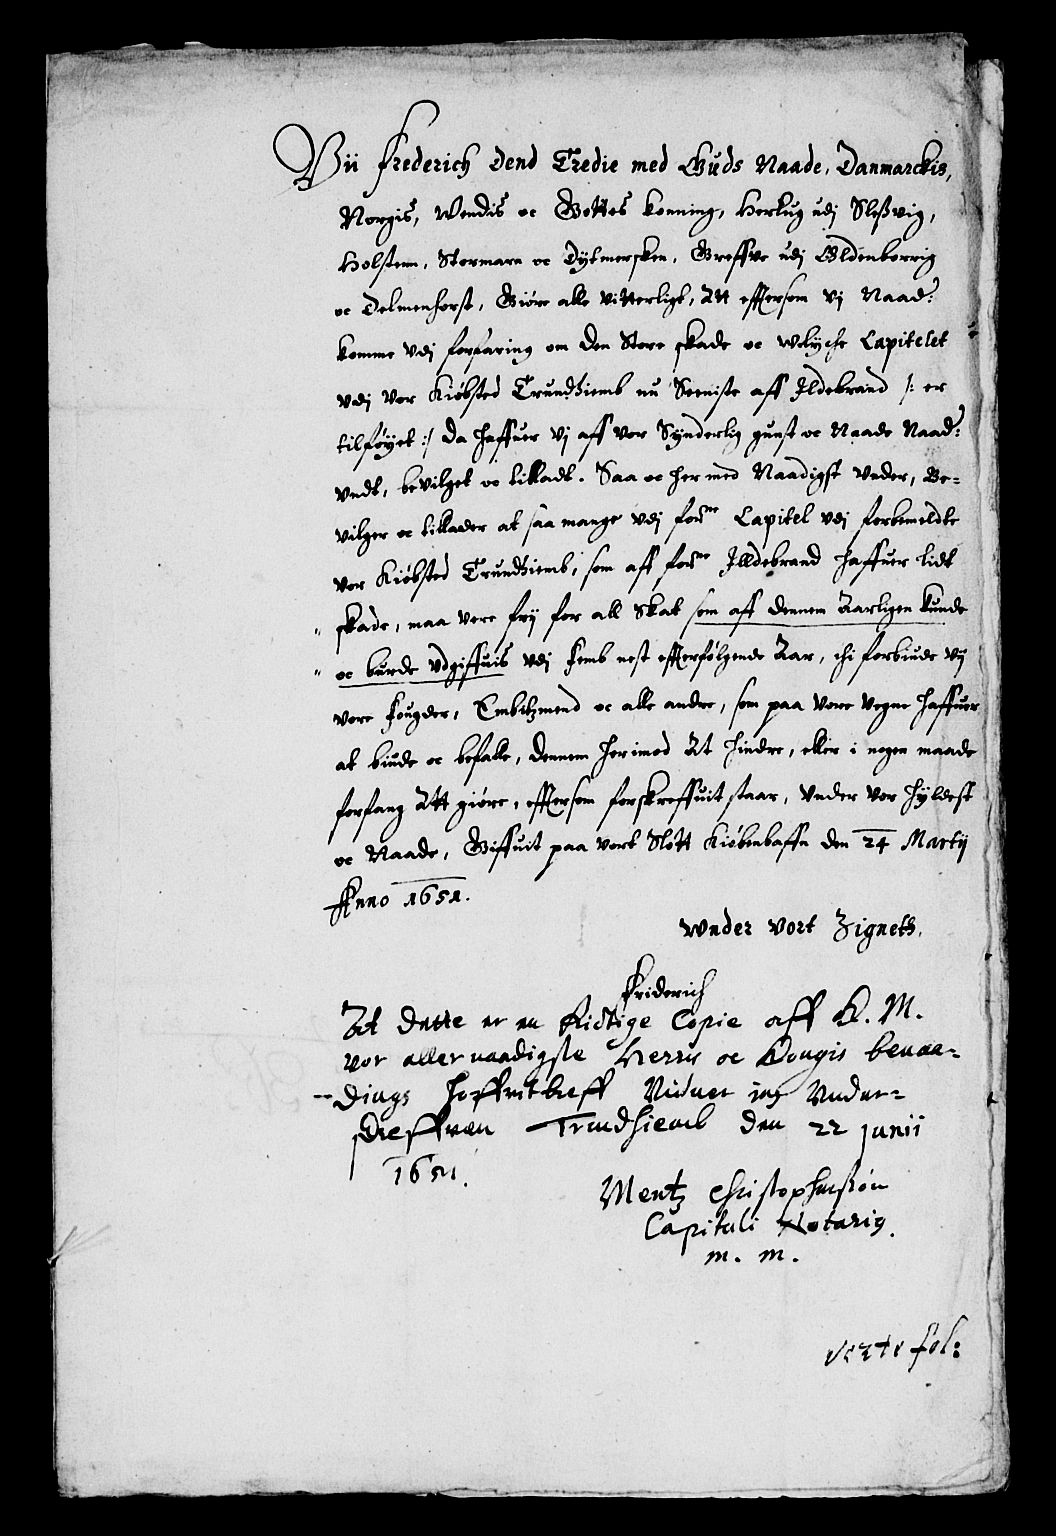 Vii Frederich Dend Tredie med Guds Naade, Danmarckis,
Norgis, Wendis oc Gottes Konning, Hertug udj Sleßvig,
Holstenn, Stormarn oc Dytmersken, Greffve udj Oldenborrig
oc Delmenhorst, Giøre alle vitterligt, Att effterson Vj Naad:
komme Vdj forfaring om den Store skade oc Wlyche Capitelet
vdj vor Kiøbsted Trundhiemb nu Seeniste aff Jldebrand /: er
tilføyet :/ Da haffuer Vj aff vor Synderlig gunst oc Naade Naad:
vndt, bevilget oc tilladt. Saa oc her med Naadigst Vnder, Be=
vilger oc tillader at saa mange Vdj forne Capitel Vdj forbemeldte
vor Kiøbsted Trundhiemb, som aff forne Jlldebrand haffuer lidt
" skade, maa vere frij for all Skat som aff dennem Aarligen kunde
" oc burde Vdgiffuis vdj Femb nest efterfølgende Aar, thi forbiude Vij
vore Fougder, Embitzmend oc alle andre, som paa Vore Vegne haffuer
at biude oc befalle, dennem herimod At hindre, eller i nogen maade
forfang Att giøre, effterson forskreffuit staar, Vnder Vor hyldest
oc Naade, Giffuit paa vort Slott Kiøbenhaffn den 24 Martij
Anno 1651.
Wnder Vort Zigneth.
Friderich
At dette er en Rictige Copie aff K. M.
vor aller naadigste Herris oc Kongis benaa-
dings hoffvetbreff Vidner ieg Vnder=
schreffven Trundhiemb den 22 junii
1651.
Mentz Christophersøn
Capituli Notarig.
m. m.
verte fol: